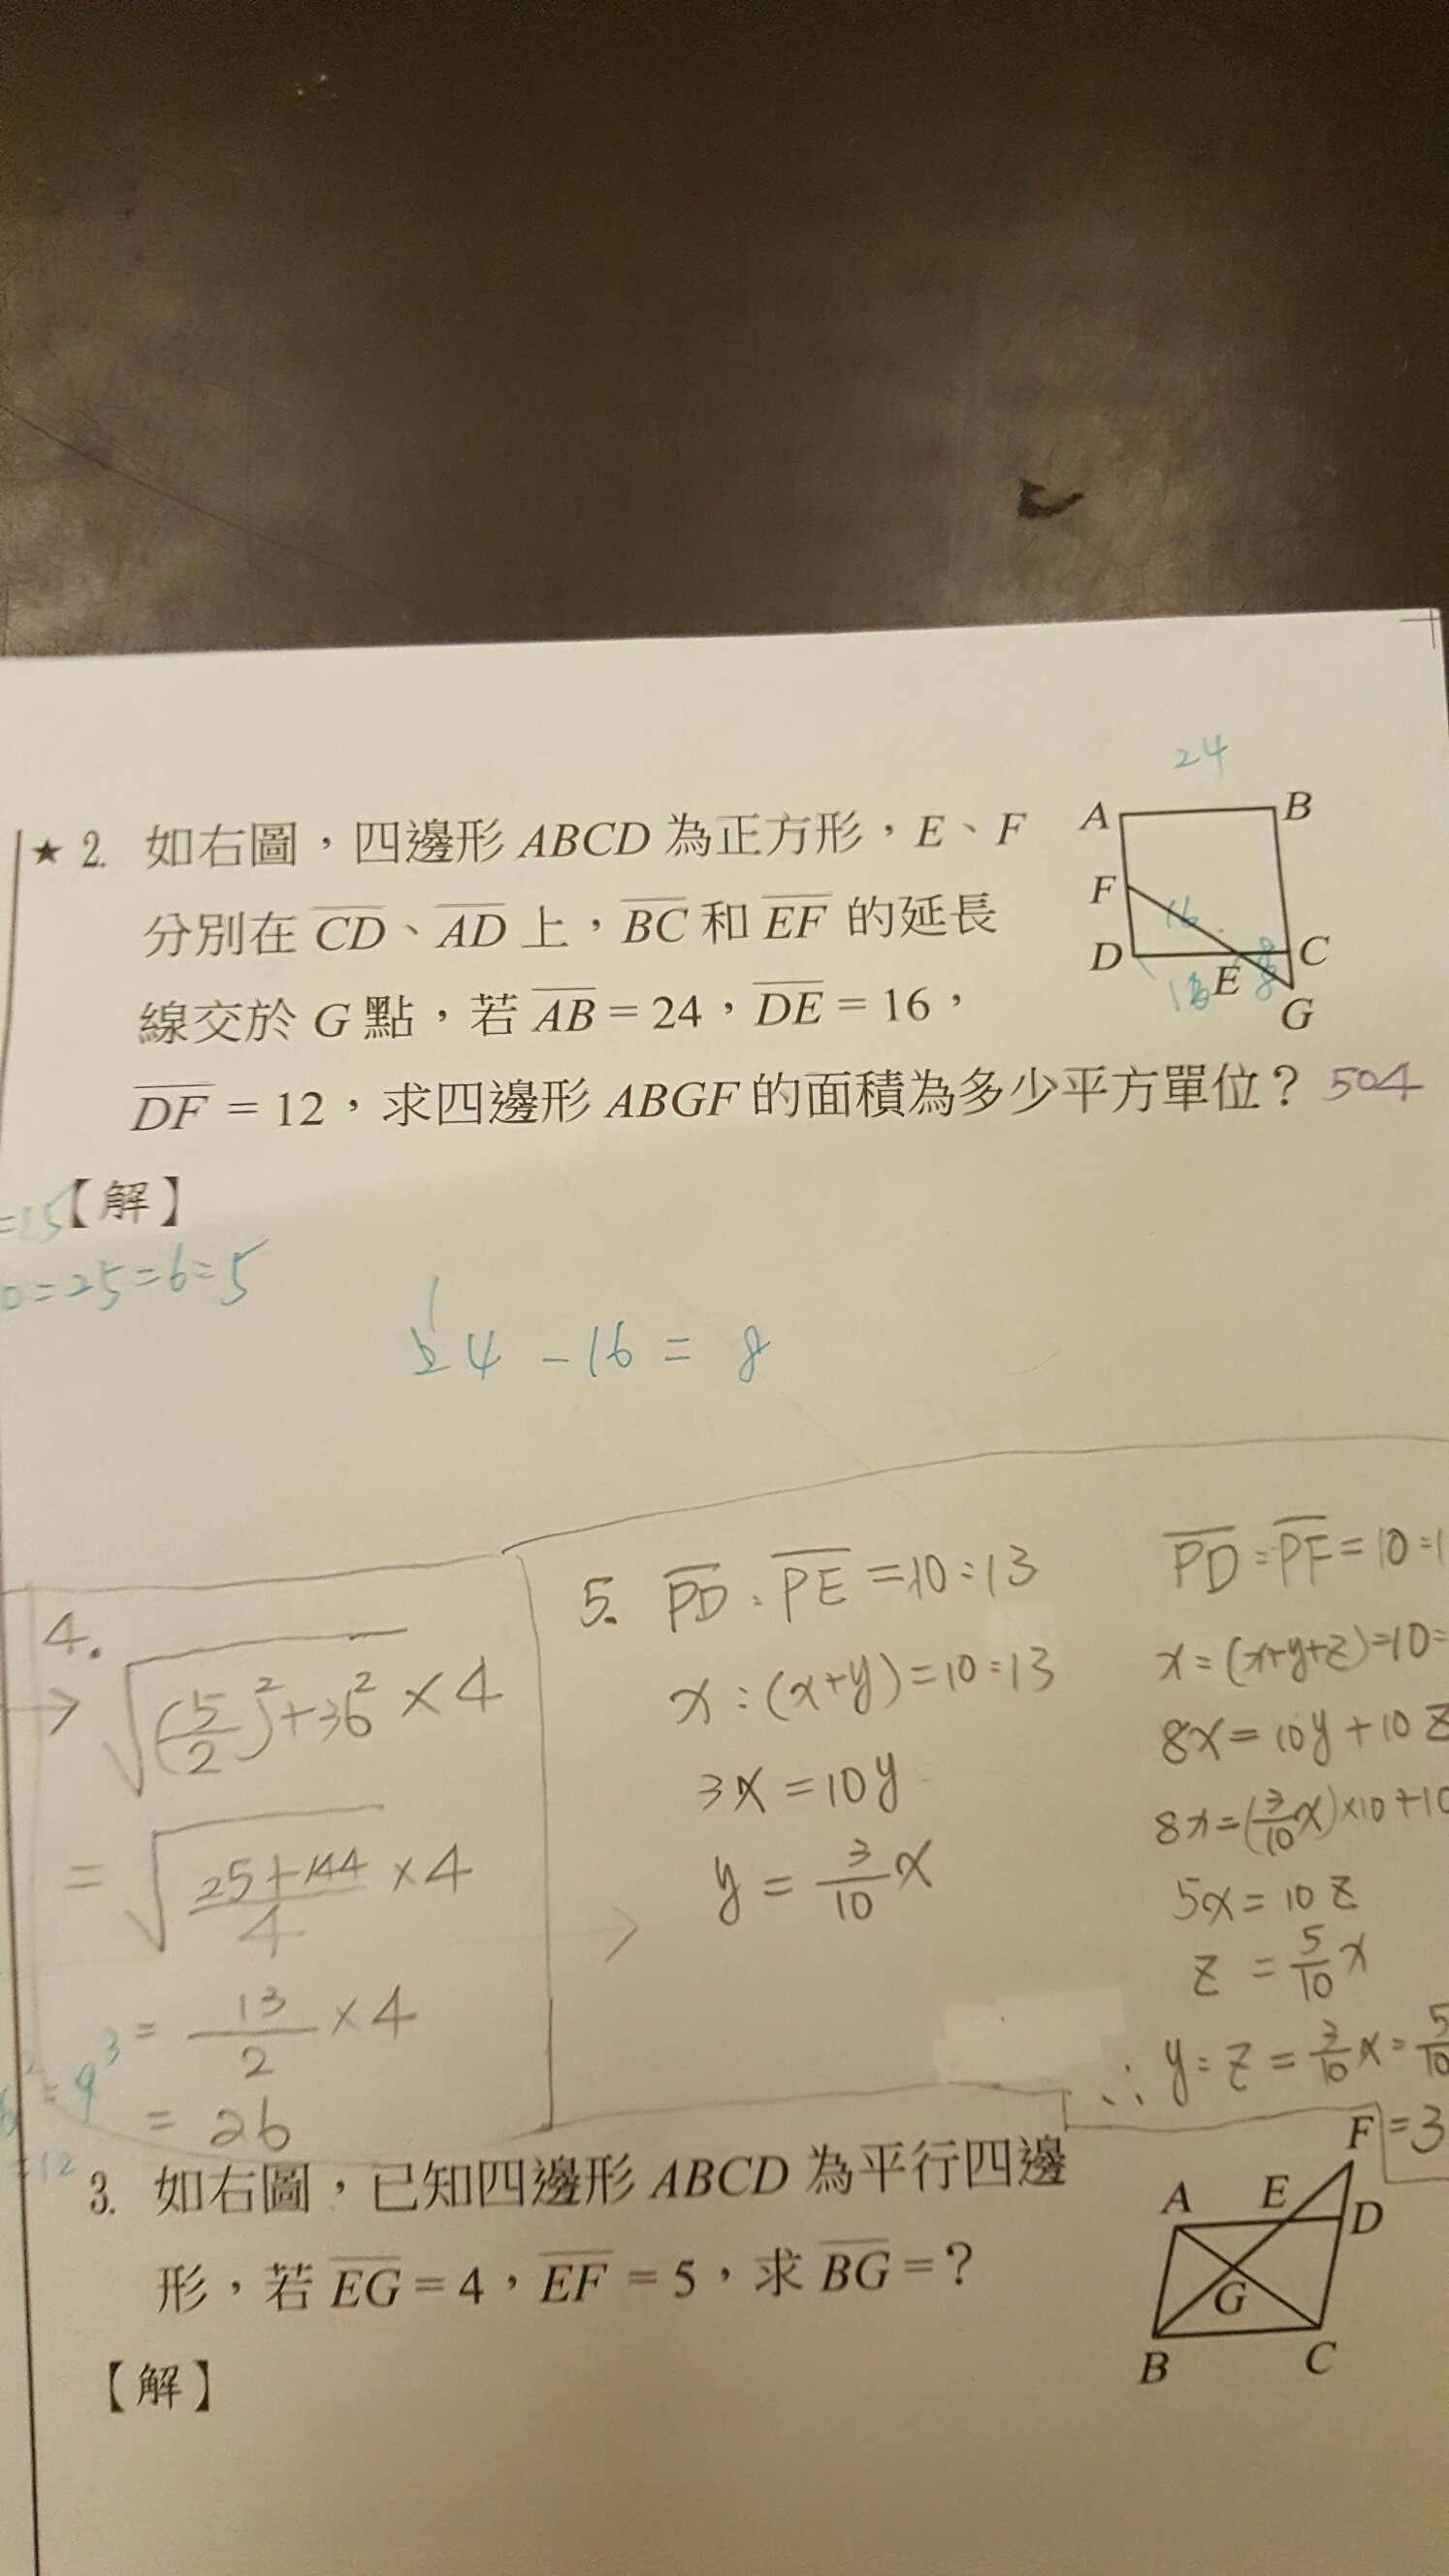 24
★ 2. 如右圖,四邊形 ABCD 為正方形,E、F
分別在 CD、AD 上,BC 和 EF 的延長
線交於 G 點,若 AB = 24,DE = 16,
DF = 12,求四邊形 ABGF 的面積為多少平方單位? 504
A B
F
16
D E C
8
G
【解】
=25=6=5
24 - 16 = 8
4.
√((5/2)²+36²) × 4
= √((25+144)/4) × 4
= 13/2 × 4
= 26
5. PD : PE = 10 : 13
x : (x+y) = 10 : 13
3x = 10y
y = 3/10 x
PD : PF = 10 :
x : (x+y+z) = 10 :
8x = 10y + 10z
8x = (3/10 x) × 10 + 10
5x = 10z
z = 5/10 x
∴ y : z = 3/10 x : 5/10
= 3
3. 如右圖,已知四邊形 ABCD 為平行四邊
形,若 EG = 4,EF = 5,求 BG = ?
F
A E D
G
B C
【解】